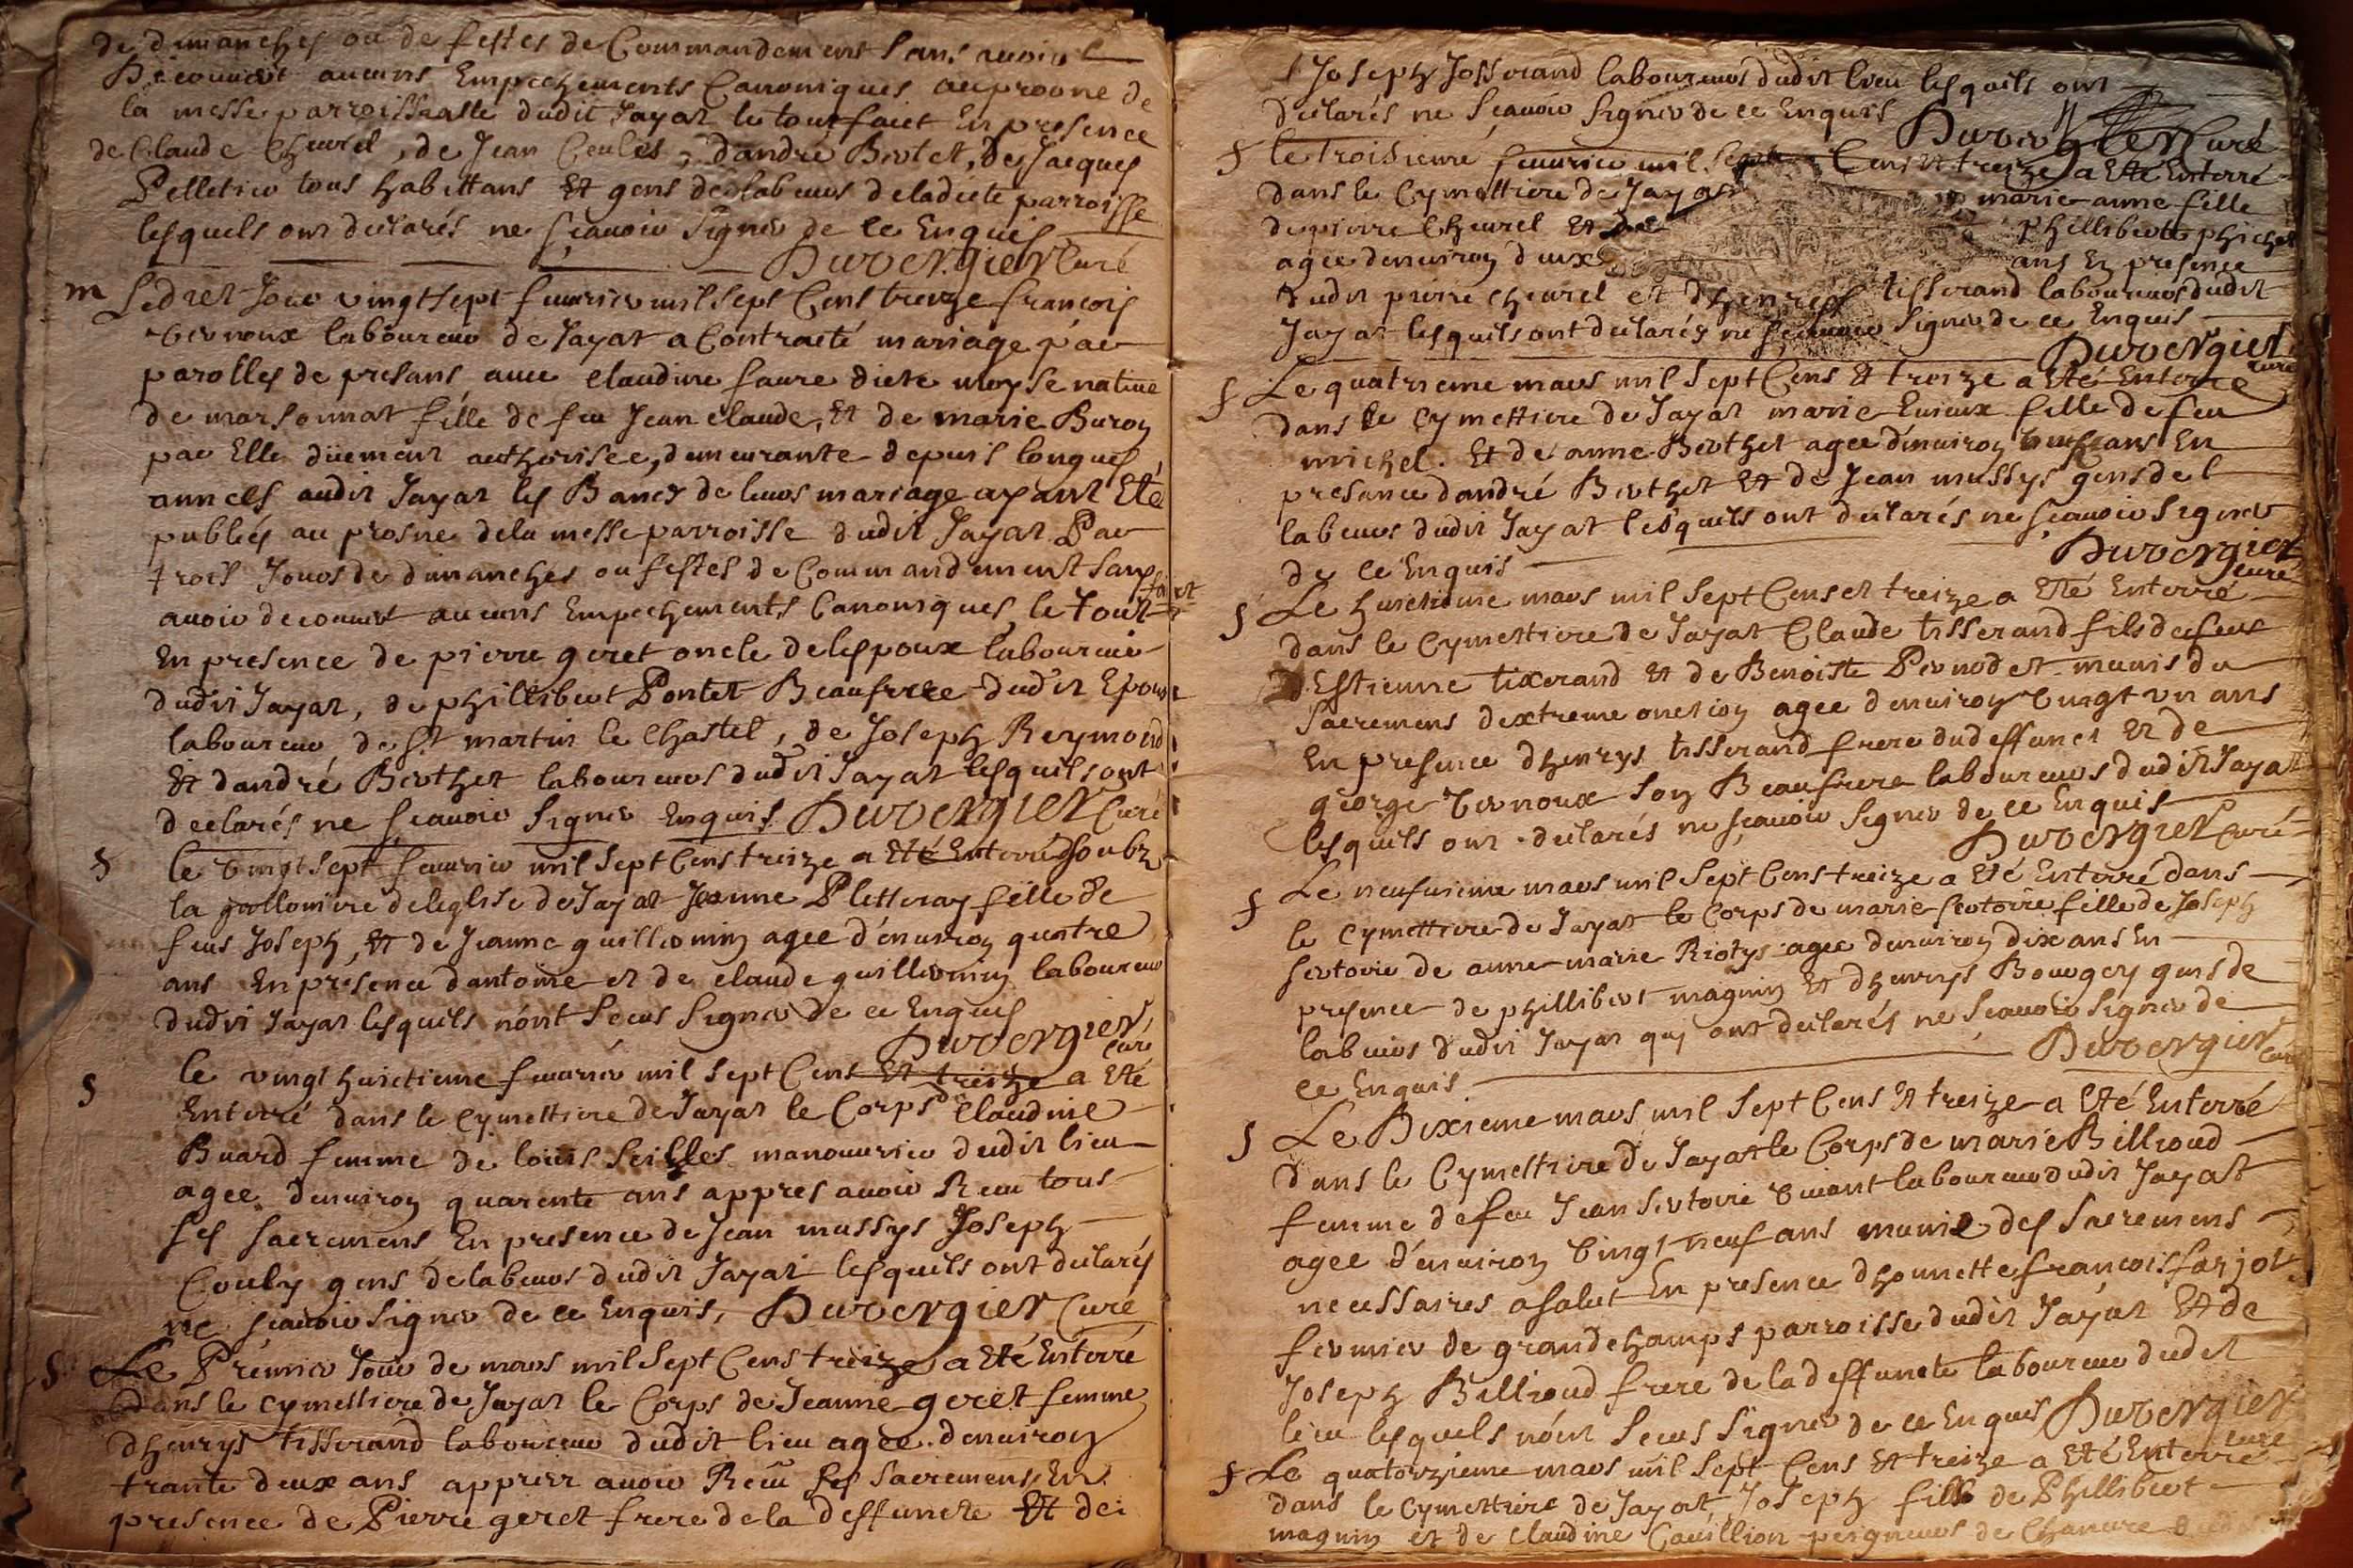 de dimanches ou de festes de Commandement sans avoir
Découvert aucuns Empechements Canoniques au prosne de
la messe parroissialle dudit Jayat le tout faict En presence
de Claude Chevrel, de Jean Coulés, dandré Bertet, de Jacques
Pelletier tous habittans Et gens de labeurs de ladicte parroisse
lesquels ont déclarés ne sçavoir signer de ce Enquis
Duvergier Curé
m Ledict Jour vingt sept fevrier mil sept Cens treize françois
vernoux laboureur de Jayat a Contracté mariage par
parolles de presans avec claudine faure dicte moyse native
de marsonnat fille de feu Jean claude, Et de marie Buron
par Elle düement authorisee, demeurante depuis longues
annees audit Jayat les Bancs de leurs mariage ayant Eté
publiés au prosne de la messe parroisse dudit Jayat Par
trois Jours de dimanches ou festes de Commandement sans
avoir decouvert aucuns Empechements Canoniques, le tout faict
En presence de pierre geret oncle de lespoux laboureur
dudit Jayat, de phillibert Pontet Beaufrere dudit Epoux
laboureur de St martin le Chastel, de Joseph Reymond
Et dandré Berthet laboureurs dudit Jayat lesquils ont
declarés ne sçavoir signer Enquis. Duvergier Curé
S le vingt sept fevrier mil sept Cens treize a Eté Enterré soubz
la de leglise de Jayat Jeanne Pletteray fille de
feus Joseph, Et de Jeanne guilliomin agee d'environ quatre
ans En presence dantoine et de claude guilliomin laboureur
dudit Jayat lesquils nont sceus signer de ce Enquis
Duvergier Curé
S le vingt huictieme fevrier mil sept Cens Et treize a Eté
Enterré dans le cymettiere de Jayat le Corps de claudine
Buard femme de loüis manouvrier dudit lieu
agee denviron quarente ans appres avoir Receu tous
ses sacremens En presence de Jean mussys Joseph
Couly gens de labeurs dudit Jayat lesquils ont déclarés
ne sçavoir signer de ce Enquis, Duvergier Curé
S Le Premier Jour de mars mil sept Cens treize a Eté Enterré
dans le cymettiere de Jayat le Corps de Jeanne geret femme
dhenrys tisserand laboureur dudit lieu agee denviron
trante deux ans apprer avoir Receü ses sacremens En
presence de Pierre geret frere de la deffuncte Et de
Joseph Josserand laboureurs dudit lieu lesquils ont
déclarés ne sçavoir signer de ce Enquis
Duvergier Curé
S le troisieme fevrier mil sept Cens Et treize a Eté Enterré
dans le Cymettiere de Jayat marie anne fille
de pierre Chevrel Et de philliberte phichet
agee denviron deux ans En presence
dudit pierre chevrel et dhenrys tisserand laboureurs dudit
Jayat lesquils ont déclarés ne sçavoir signer de ce Enquis
Duvergier Curé
S Le quatrieme mars mil sept Cens Et treize a Eté Enterré
dans le cymettiere de Jayat marie fille de feu
michel Et de anne Berthet agee denviron ans En
presance dandré Berthet Et de Jean mussys gens de
labeurs dudit Jayat lesquils ont déclarés ne sçavoir signer
de ce Enquis
Duvergier curé
S Le huictieme mars mil sept Cens et treize a Eté Enterré
dans le Cymettiere de Jayat Claude tisserand fils de feus
Estienne tixerand Et de Benoiste Pernodet munis du
sacremens dextreme onction agee denviron vingt vn ans
En presence dhenrys tisserand frere dud deffunct Et de
george vernoux son Beaufrere laboureurs dudit Jayat
lesquils ont déclarés ne sçavoir signer de ce Enquis
Duvergier Curé
S Le neufvieme mars mil sept Cens treize a Eté Enterré dans
le cymettiere de Jayat le Corps de marie sertoire fille de Joseph
sertoire de anne marie Riotys agee denviron dix ans En
presence de phillibert magnin Et dhenrys Bourgey gens de
labeurs dudit Jayat quj ont déclarés ne sçavoir signer de
ce Enquis
Duvergier Curé
S Le Dixieme mars mil sept Cens Et treize a Eté Enterré
dans le Cymettiere de Jayat le Corps de marie Billioud
femme de feu Jean sertoire vivant laboureur dudit Jayat
agee d'environ vingt neuf ans munie des sacremens
necessaires a salut En presence dhonnette françois farjot
fermier de grandchamps parroisse dudit Jayat Et de
Joseph Billioud frere de la deffuncte laboureur dudit
lieu lesquels nont sceus signer de ce Enquis Duvergier
curé
S Le quatorzieme mars mil sept Cens Et treize a Eté Enterré
dans le cymettiere de Jayat Joseph fils de Phillibert
magnin et de claudine Cavillion peigneurs de Chanvre